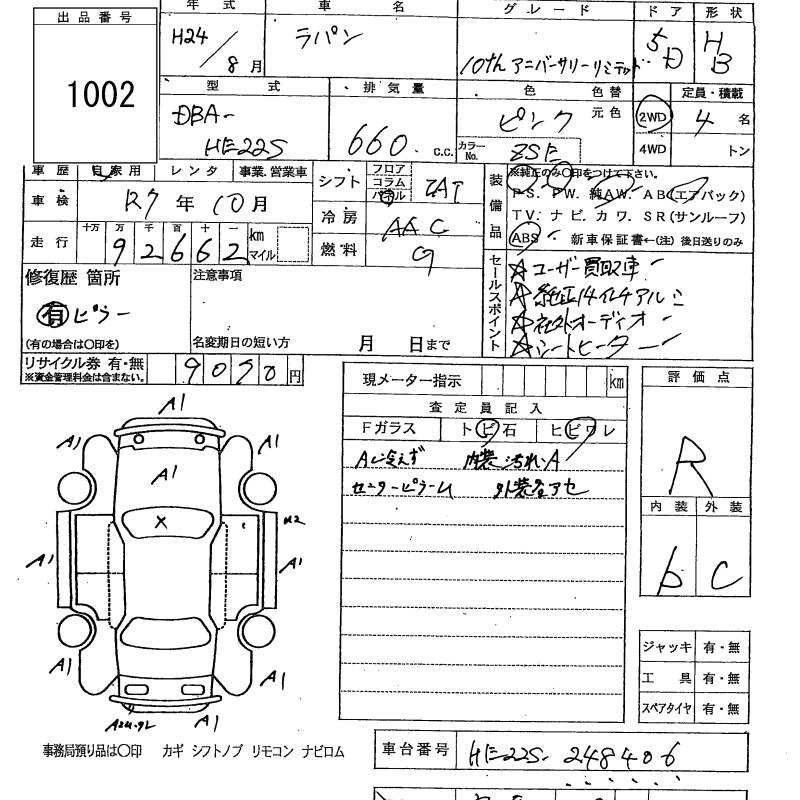 出品番号
1002
年式
H24/8月
車名
ラパン
グレード
10th アニバーサリーリミテッド
ドア
5D
形状
HB
型式
DBA-HE22S
排気量
660 c.c.
色 色替
ピンク 元色
カラーNo. ZSE
2WD
4WD
定員・積載
4名
トン
車歴 自家用 レンタ 事業.営業車
車検 R7年10月
走行 十万 万 千 百 十 一
92662 km マイル
シフト フロア コラム パネル
冷房 AAC
燃料 G
装備品
※純正のみ〇印をつけて下さい。
PS. PW. 純AW. AB(エアバック)
TV. ナビ. カワ. SR(サンルーフ)
ABS 新車保証書←(注) 後日送りのみ
修復歴 箇所
有 ピラー
(有の場合は〇印を)
注意事項
名変期日の短い方 月 日まで
セールスポイント
☆ユーザー買取車
☆純正14インチアルミ
☆社外オーディオ
☆シートヒーター
リサイクル券 有・無
※資金管理料金は含まない。
9090円
現メーター指示 km
査定員記入
Fガラス トビ石 ヒビワレ
A/C冷えず 内装汚れ.A
センターピラーU 外装各アセ
評価点
R
内装 外装
b C
A1
A1 A1
A1
X
A1 A1
A1 A1
A1
ジャッキ 有・無
工具 有・無
スペアタイヤ 有・無
事務局預り品は〇印 カギ シフトノブ リモコン ナビロム
車台番号 HE22S-248406